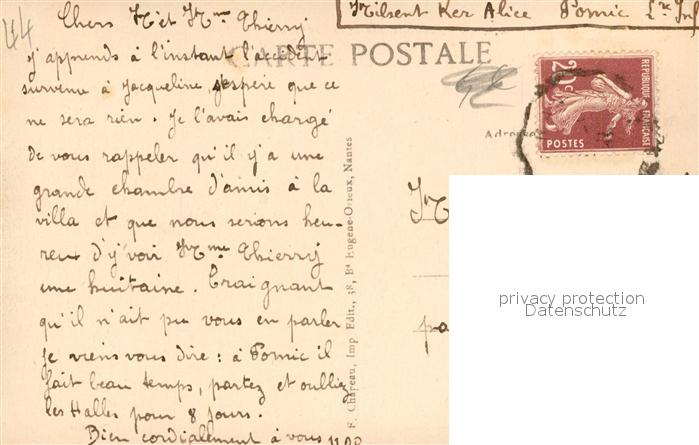 44
Milsent Ker Alice Pornic Lre Infre
Chers Mr et Mme Thierry
CARTE POSTALE
j'apprends à l'instant l'accident
survenu à Jacqueline, j'espère que ce
ne sera rien. Je l'avais chargé
de vous rappeler qu'il y a une
grande chambre d'amis à la
villa et que nous serions heu-
reux d'y voir Mme Thierry
une huitaine. Craignant
qu'il n'ait pu vous en parler
je viens vous dire : à Pornic il
fait beau temps, partez et oubliez
les Halles pour 8 jours.
Bien cordialement à vous
20c
REPUBLIQUE FRANÇAISE
POSTES
Adresse
F. Chapeau, Imp Edit., 38, Bd Eugène-Orieux, Nantes
M
pa
privacy protection
Datenschutz